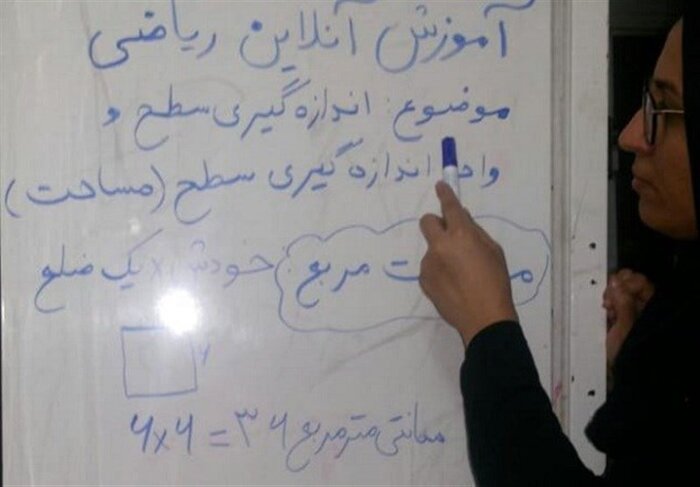 آموزش آنلاین ریاضی
موضوع: اندازه گیری سطح و
واحد اندازه گیری سطح (مساحت)
مربع: خودش × یک ضلع
۶
۶×۶ = ۳۶ سانتی متر مربع